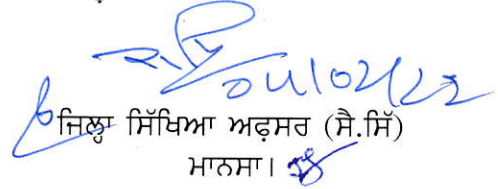 04/02/22
ਜਿਲ੍ਹਾ ਸਿੱਖਿਆ ਅਫ਼ਸਰ (ਸੈ.ਸਿੱ)
ਮਾਨਸਾ।